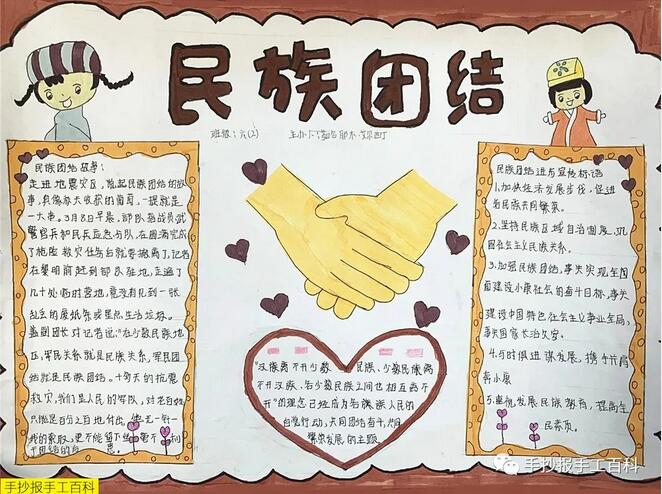 民族团结
班级：六(2)
民族团结故事：
走进地震灾区，说起民族团结的故
事，只像秋天收获的葡萄，一提就是
一大串。3月8日早晨，部队指战员、武
警官兵和民兵应急分队，在圆满完成
了抢险救灾任务后就要撤离了，记者
在黎明前赶到部队驻地，走遍了
几十处临时营地，竟没有见到一张
乱丢的废纸
副团长对记者说："在少数民族地
区，军民关系就是民族关系，军民团
结就是民族团结。十多天的抗震
救灾，我们是人民的军队，对老百姓
只能是百分之百地付出
"汉族离不开少数民族、少数民族离
不开汉族、各少数民族之间也相互离不
开"的理念已经成为各族人民的
自觉行动，共同团结奋斗，共同
繁荣发展的主题
民族团结进步宣传标语
1.加快经济发展步伐，促进
各民族共同繁荣。
2.坚持民族区域自治制度，巩
固社会主义民族关系。
3.加强民族团结，事关实现全国
建设小康社会的奋斗目标，事关
建设中国特色社会主义事业全局，
事关国家长治久安。
4.与时俱进谋发展，携手共肩
奔小康
5.重视发展民族教育，提高全
民素质。
手抄报手工百科
手抄报手工百科